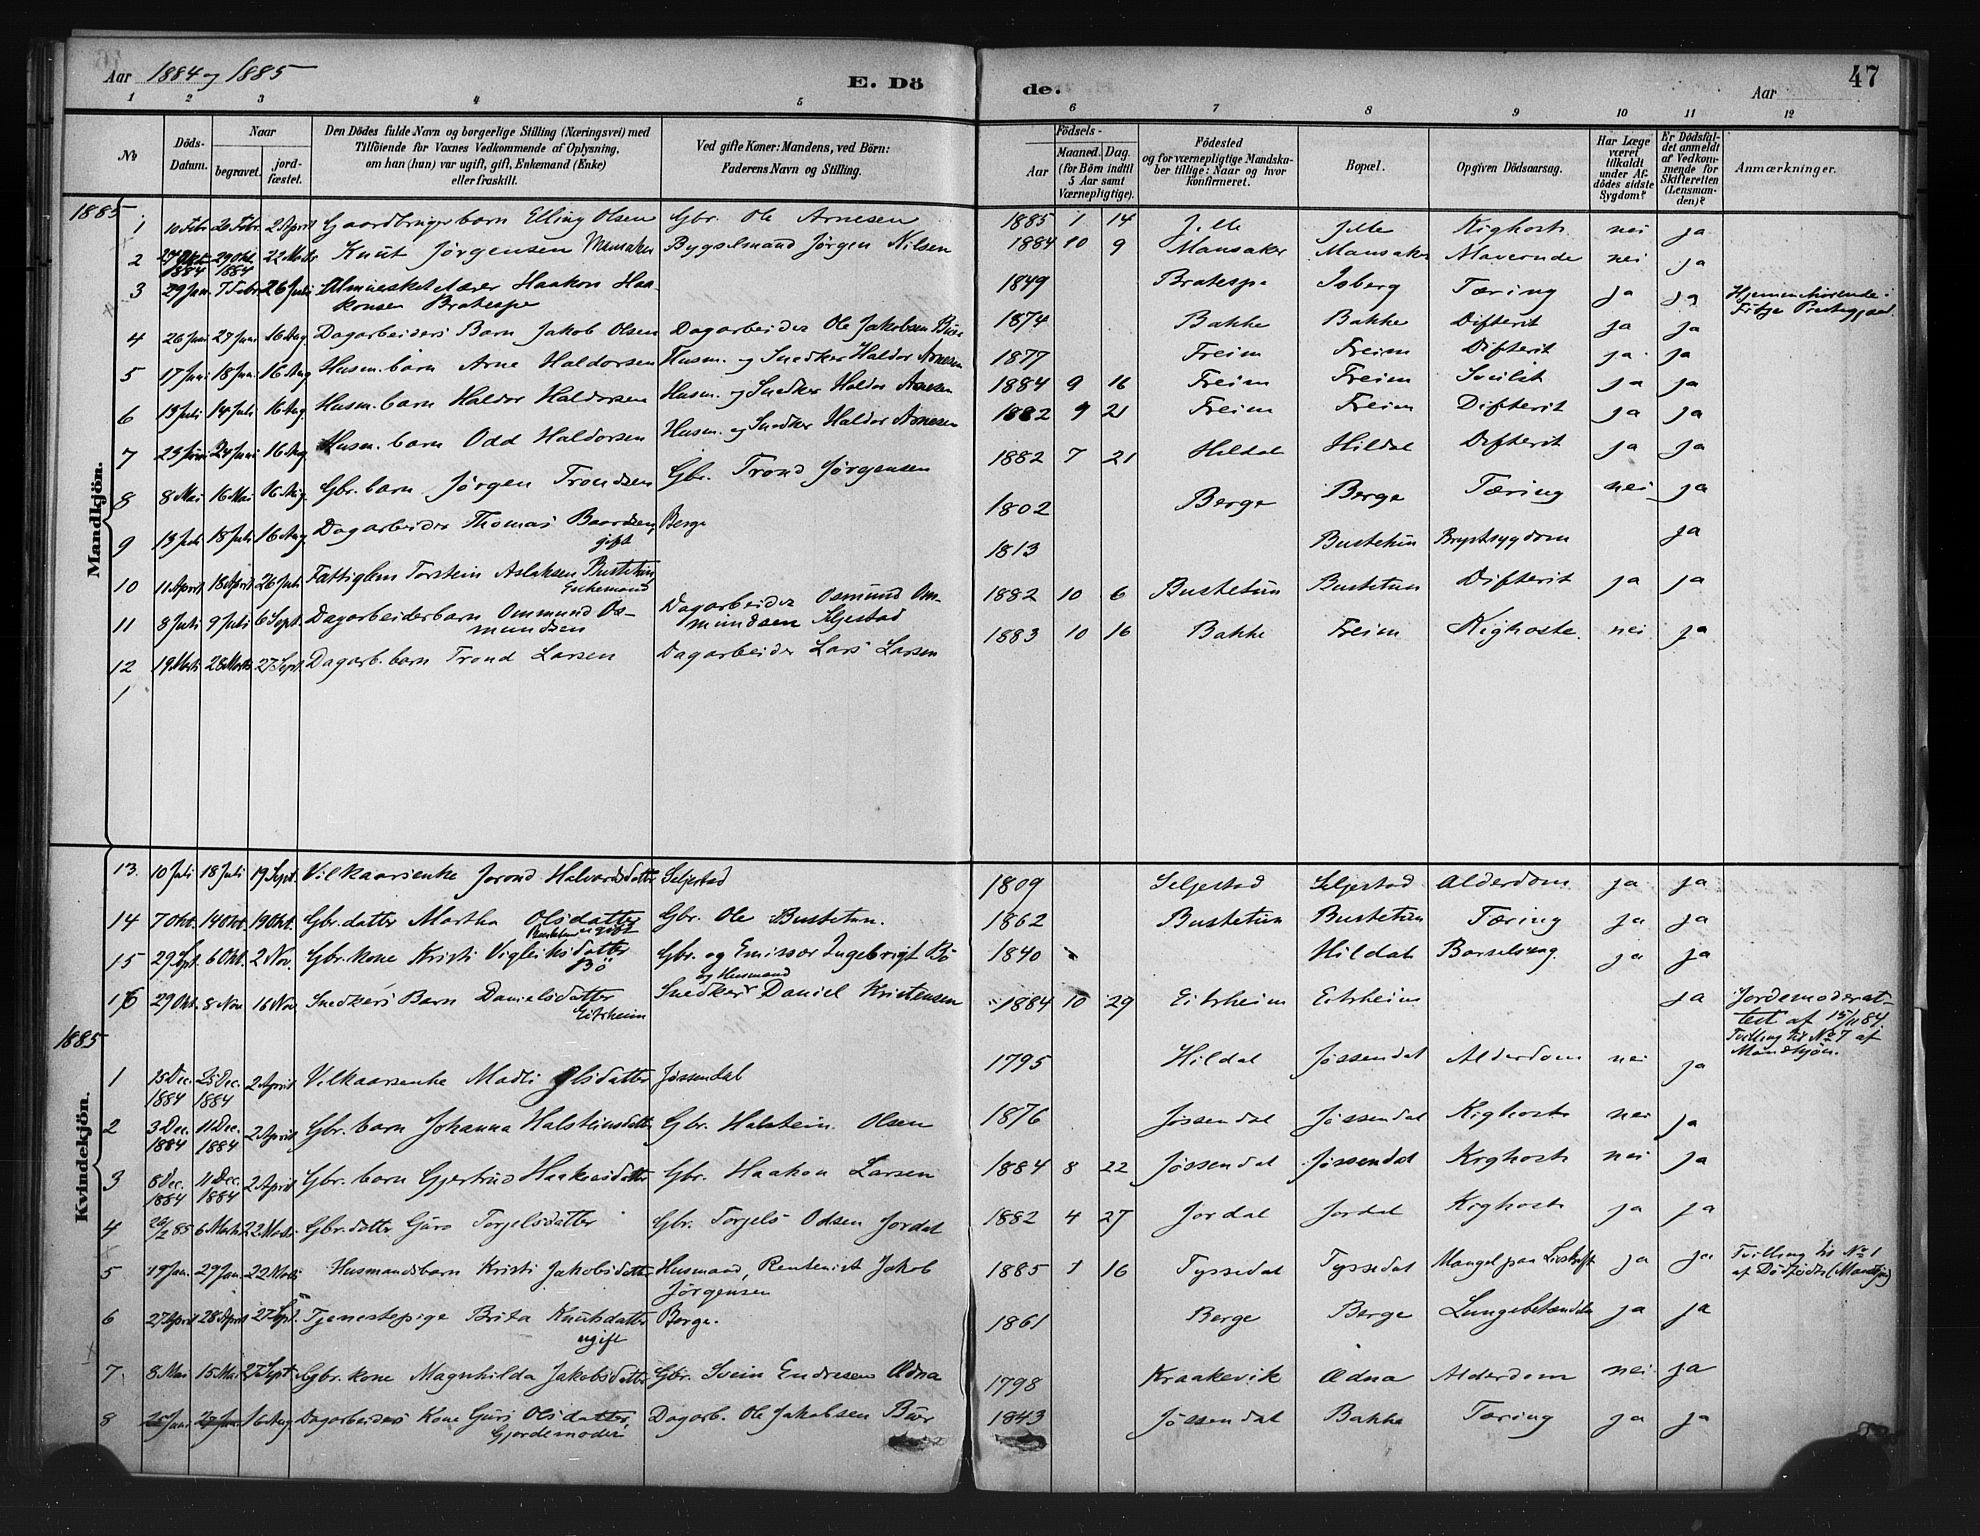 Aar 1884 og 1885
E. Döde.
Aar
47
1 2 3 4 5 6 7 8 9 10 11 12
No
Döds-Datum.
Naar begravet. jordfæstet.
Den Dödes fulde Navn og borgerlige Stilling (Næringsvei) med
Tilföiende for Voxnes Vedkommende af Oplysning,
om han (hun) var ugift, gift, Enkemand (Enke)
eller fraskilt.
Ved gifte Koner: Mandens, ved Börn:
Faderens Navn og Stilling.
Födsels-
Aar Maaned. Dag.
(for Börn indtil
5 Aar samt
Værnepligtige).
Födested
og for værnepligtige Mandska-
ber tillige: Naar og hvor
konfirmeret.
Bopæl.
Opgiven Dödsaarsag.
Har Læge
været
tilkaldt
under Af-
dödes sidste
Sygdom?
Er Dödsfal-
det anmeldt
af Vedkom-
mende for
Skifteretten
(Lensman-
den)?
Anmærkninger.
Mandkjön.
1885
1 10 Febr 20 Febr. 2 April Gaardbrugerbarn Elling Olsen Gbr. Ole Arnesen 1885 1 14 Jille Jille Kighoste nei ja
2 1884 29 Okt. 1884 22 Marts Knut Jørgensen Mansaker Bygselmand Jørgen Nilsen 1884 10 9 Mansaker Mansaker Mavernde nei ja
3 29 Jan 7 Febr 26 Juli Almueskolelærer Haakon Haa-
konsen Bratespe 1849 Bratespe Isberg Tæring ja ja Hjemmehørende i
Fitje Prestegjæld.
4 26 Juni 27 Juni 16 Aug. Dagarbeiders Barn Jakob Olsen Dagarbeider Ole Jakobsen Buer 1874 Bakke Bakke Difterit ja ja
5 17 Juni 18 Juni 16 Aug Husm. barn Arne Haldorsen Husm. og Snedker Haldor Arnesen 1877 Freim Freim Difterit ja ja
6 13 Juli 14 Juli 16 Aug. Husm. barn Haldor Haldorsen Husm. og Snedker Haldor Arnesen 1884 9 16 Freim Freim ja ja
7 23 Juni 24 Juni 16 Aug. Husm. barn Odd Haldorsen Husm. og Snedker Haldor Arnesen 1882 9 21 Freim Freim Difterit ja ja
8 8 Mai 16 Mai 16 Aug. Gbr. barn Jørgen Trondsen Gbr. Trond Jørgensen 1882 7 21 Hildal Hildal Difterit ja ja
9 13 Juli 18 Juli 16 Aug. Dagarbeider Thomas Baardsen, gift Berge 1802 Berge Berge Tæring nei ja
10 11 April 18 April 26 Juli Fattiglem Torstein Aslaksen Bustetun
Enkemand 1813 Bustetun Brystsygdom ja
11 8 Juli 9 Juli 6 Sept. Dagarbeiderbarn Ommund Os-
mundsen Dagarbeider Osmund Om-
mundsen Seljestad 1882 10 6 Bustetun Bustetun Difterit ja ja
12 19 Marts 28 Marts 27 Sept. Dagarb. barn Trond Larsen Dagarbeider Lars Larsen 1883 10 16 Bakke Freim Kighoste. nei ja
1
Kvindekjön.
13. 10 Juli 18 Juli 19 Sept. Vilkaarsenke Jorond Halvardsdatter Seljestad 1809 Seljestad Seljestad Alderdom ja ja
14 7 Okt. 14 Okt. 19 Okt. Gbr. datter Martha Olsdatter
Bustetun ugift Gbr. Ole Bustetun. 1862 Bustetun Bustetun Tæring ja ja
15 29 Sept. 6 Okt. 2 Nov. Gbr. kone Kristi Vigleiksdatter
Bö Gbr. og Emissær Ingebrigt Bö 1840 Hildal Barselsseng ja ja
16 29 Okt. 8 Nov 16 Nov Snedkers Barn Danielsdatter
Eitrheim og Husmand
Snedker Daniel Kristensen 1884 10 29 Eitrheim Eitrheim ja Jordemoderat-
test af 15/11 84.
Tvilling til No 7 af
Mandkjön
1885
1 15 Dec. 1884 25 Dec. 1884 2 April Vilkaarsenke Madli Olsdatter Jøssendal 1795 Hildal Jøssendal Alderdom nei ja
2 3 Dec. 1884 11 Dec. 1884 2 April Gbr. barn Johanna Halsteinsdatter Gbr. Halstein Olsen 1876 Jøssendal Jøssendal Kighoste nei ja
3 8 Dec. 1884 11 Dec. 1884 2 April Gbr. barn Gjertrud Haakonsdatter Gbr. Haakon Larsen 1884 8 22 Jøssendal Jøssendal Kighoste nei ja
4 20/2 85 6 Marts 22 Marts Gbr. datter Guro Torgelsdatter Gbr. Torgels Odsen Jordal 1882 4 27 Jordal Jordal Kighoste ja ja
5 19 Jan. 29 Jan. 22 Marts Husmandsbarn Kristi Jakobsdatter Husmand, Rentenist Jakob
Jörgensen 1885 1 16 Tyssedal Tyssedal Mangel paa Livskraft ja ja Tvilling til No 1
af Dödfødte (Mandkjøn)
6 27 April 28 April 27 Sept. Tjenestepige Brita Knutsdatter
ugift Berge. 1861 Berge Berge Lungebetændelse ja ja
7. 8 Mai 15 Mai 27 Sept Gbr. kone Magnhilda Jakobsdatter Gbr. Svein Endresen Ædna 1798 Kraakevik Ædna Alderdom nei ja
8 25 Juni 16 Aug. Dagarbeiders Kone Guri Olsdatter,
Gjordemoder Dagarb. Ole Jakobsen Buer 1843 Jøssendal Bakke Tæring ja ja